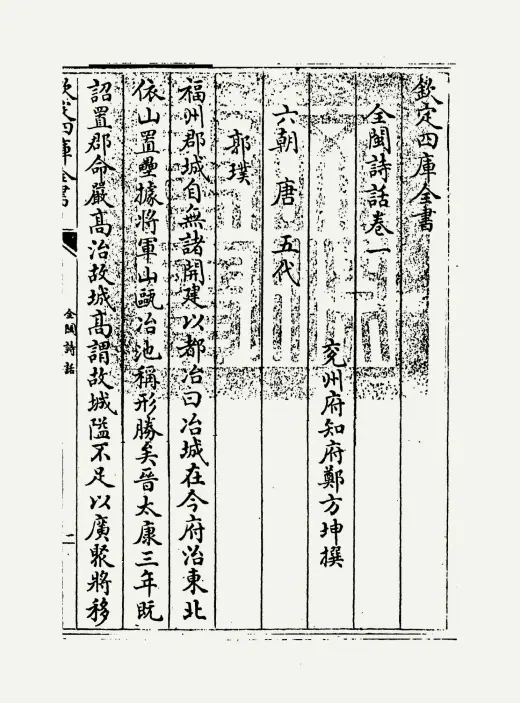 欽定四庫全書
全閩詩話卷一
兗州府知府鄭方坤撰
六朝 唐 五代
郭璞
福州郡城自無諸開建以都冶曰冶城在今府治東北
依山置壘據將軍山甌冶池稱形勝矣晉太康三年既
詔置郡命嚴高治故城高謂故城隘不足以廣聚將移
欽定四庫全書
全閩詩話
二